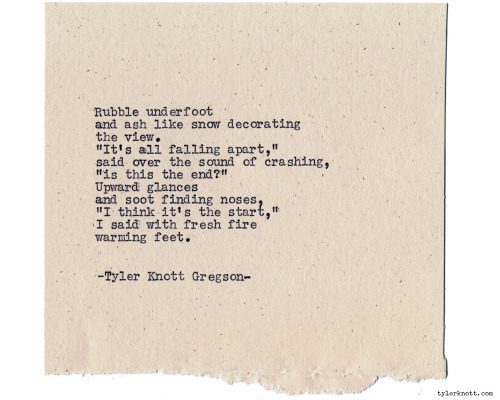 Rubble underfoot
and ash like snow decorating
the view.
"It's all falling apart,"
said over the sound of crashing,
"is this the end?"
Upward glances
and soot finding noses,
"I think it's the start,"
I said with fresh fire
warming feet.
-Tyler Knott Gregson-
tylerknott.com